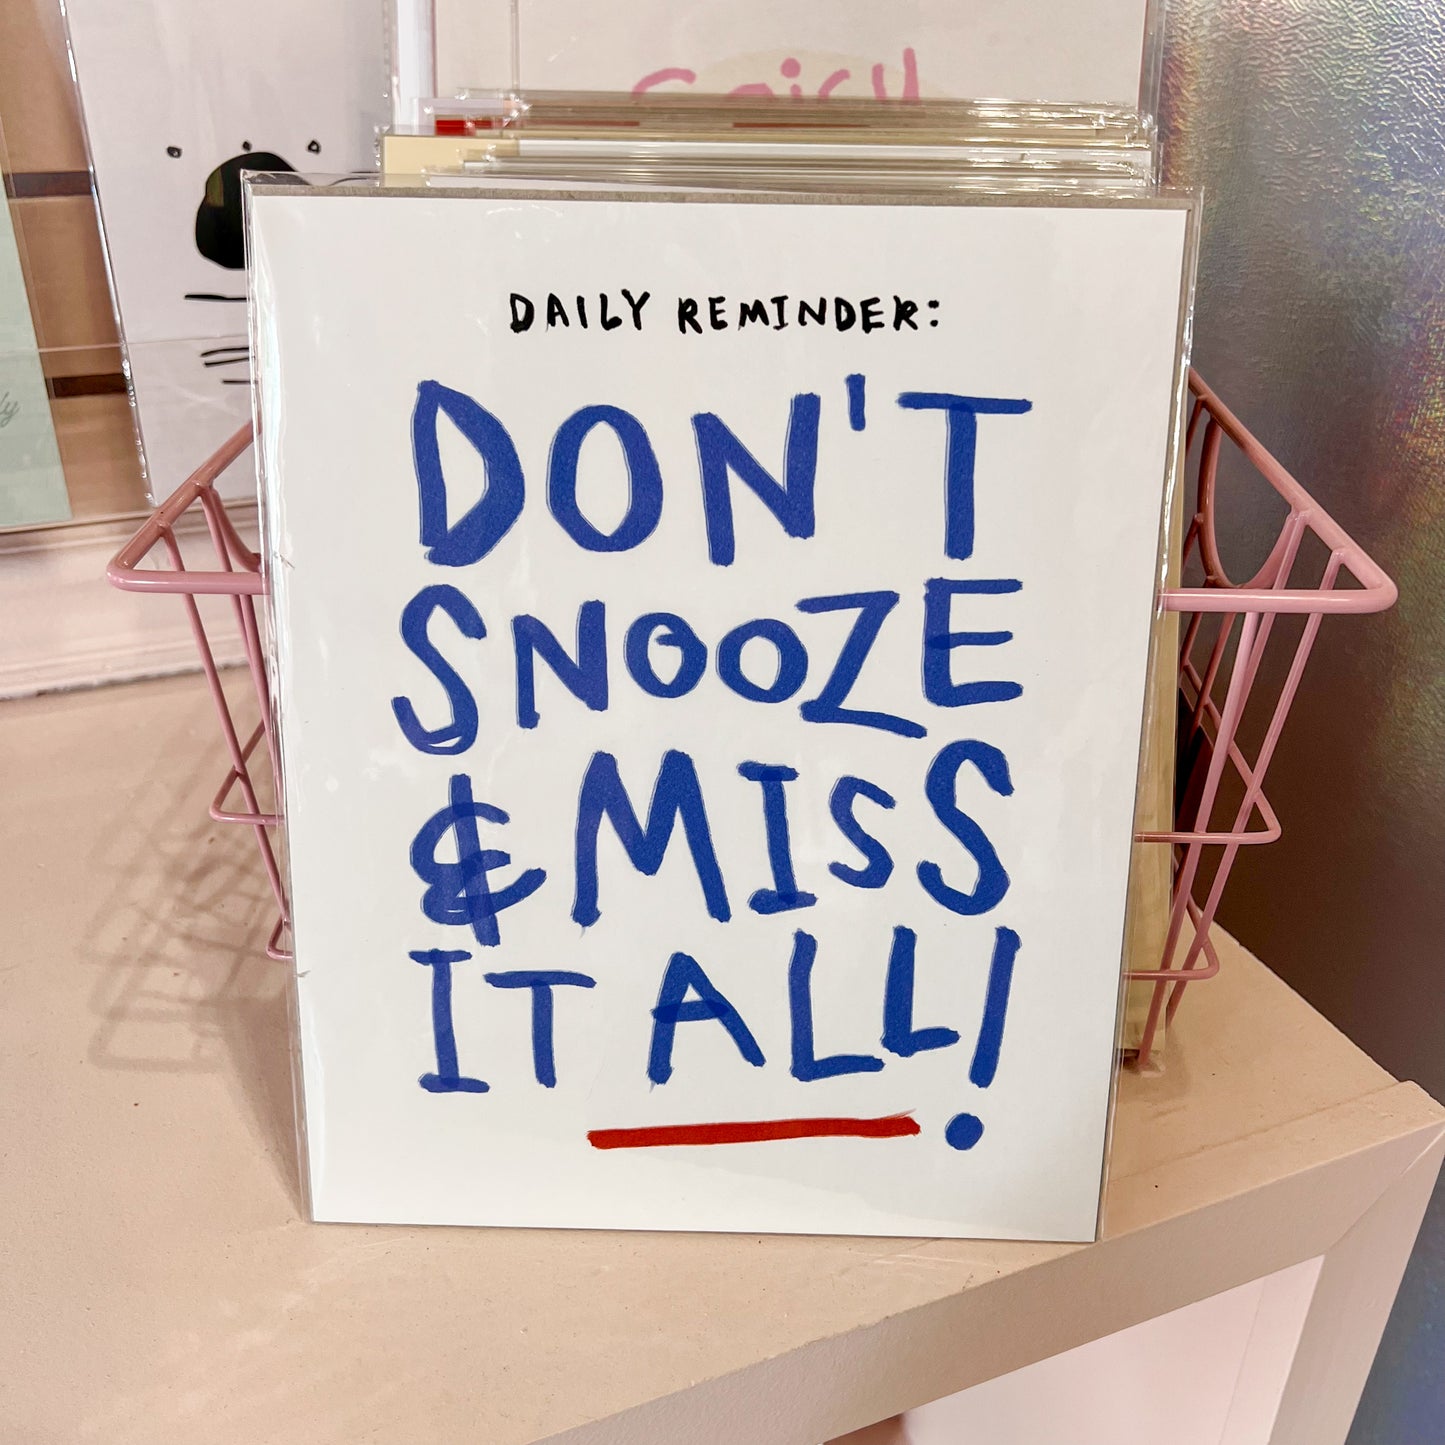 Spicy
DAILY REMINDER:
DON'T
SNOOZE
& MISS
IT ALL!